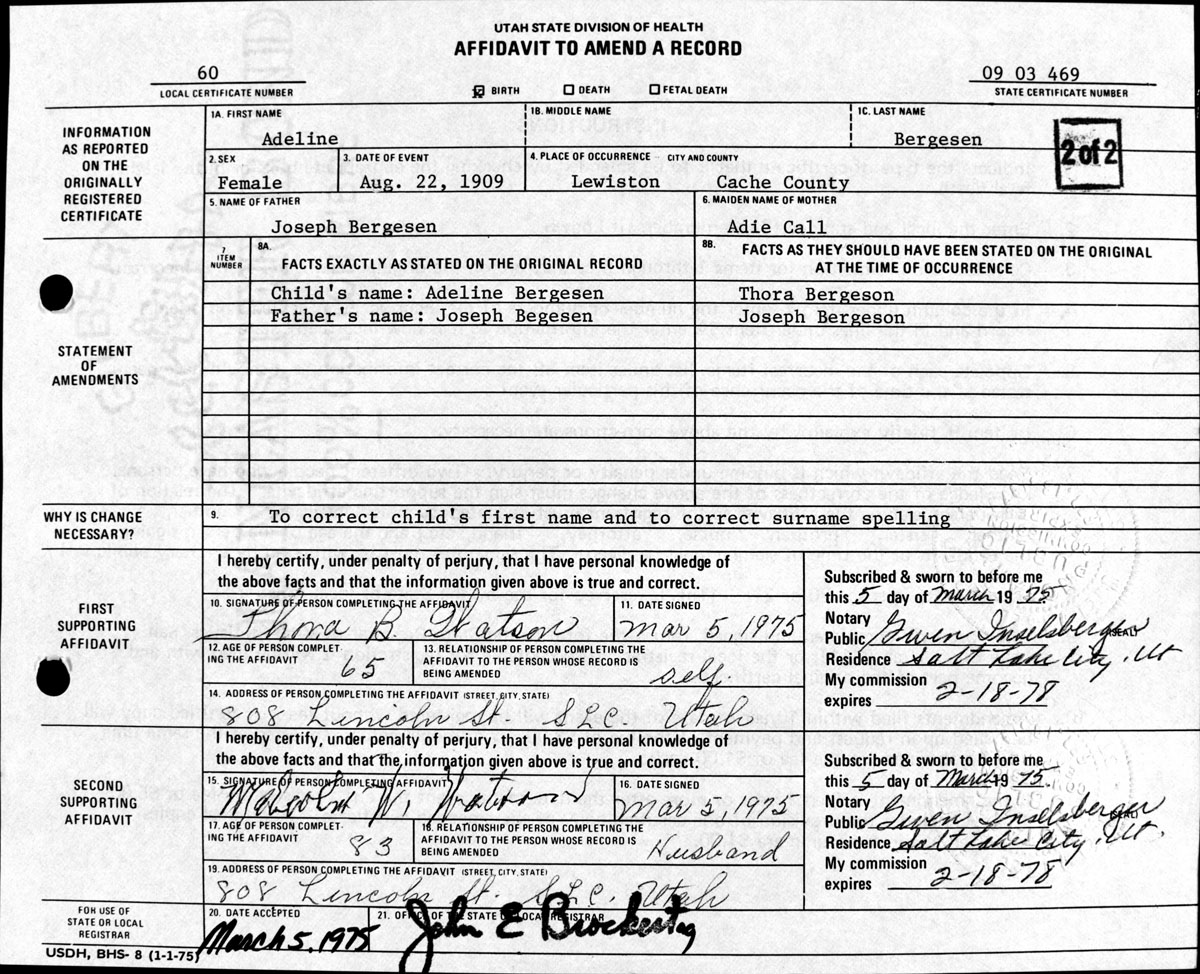 UTAH STATE DIVISION OF HEALTH
AFFIDAVIT TO AMEND A RECORD
60
LOCAL CERTIFICATE NUMBER
BIRTH DEATH FETAL DEATH
09 03 469
STATE CERTIFICATE NUMBER
INFORMATION
AS REPORTED
ON THE
ORIGINALLY
REGISTERED
CERTIFICATE
1A. FIRST NAME
Adeline
1B. MIDDLE NAME
1C. LAST NAME
Bergesen
2 of 2
2. SEX
Female
3. DATE OF EVENT
Aug. 22, 1909
4. PLACE OF OCCURRENCE CITY AND COUNTY
Lewiston Cache County
5. NAME OF FATHER
Joseph Bergesen
6. MAIDEN NAME OF MOTHER
Adie Call
STATEMENT
OF
AMENDMENTS
7
ITEM
NUMBER
8A.
FACTS EXACTLY AS STATED ON THE ORIGINAL RECORD
8B.
FACTS AS THEY SHOULD HAVE BEEN STATED ON THE ORIGINAL
AT THE TIME OF OCCURRENCE
Child's name: Adeline Bergesen
Thora Bergeson
Father's name: Joseph Begesen
Joseph Bergeson
WHY IS CHANGE
NECESSARY?
9. To correct child's first name and to correct surname spelling
FIRST
SUPPORTING
AFFIDAVIT
I hereby certify, under penalty of perjury, that I have personal knowledge of
the above facts and that the information given above is true and correct.
10. SIGNATURE OF PERSON COMPLETING THE AFFIDAVIT
Thora B. Watson
11. DATE SIGNED
Mar 5, 1975
12. AGE OF PERSON COMPLET-
ING THE AFFIDAVIT
65
13. RELATIONSHIP OF PERSON COMPLETING THE
AFFIDAVIT TO THE PERSON WHOSE RECORD IS
BEING AMENDED
self
14. ADDRESS OF PERSON COMPLETING THE AFFIDAVIT (STREET, CITY, STATE)
808 Lincoln St. SLC. Utah
Subscribed & sworn to before me
this 5 day of March 19 75
Notary
Public Gwen Inselsberger (SEAL)
Residence Salt Lake City, Ut
My commission
expires 2-18-78
SECOND
SUPPORTING
AFFIDAVIT
I hereby certify, under penalty of perjury, that I have personal knowledge of
the above facts and that the information given above is true and correct.
15. SIGNATURE OF PERSON COMPLETING AFFIDAVIT
Malcolm W. Watson
16. DATE SIGNED
Mar 5, 1975
17. AGE OF PERSON COMPLET-
ING THE AFFIDAVIT
83
18. RELATIONSHIP OF PERSON COMPLETING THE
AFFIDAVIT TO THE PERSON WHOSE RECORD IS
BEING AMENDED
Husband
19. ADDRESS OF PERSON COMPLETING THE AFFIDAVIT (STREET, CITY, STATE)
808 Lincoln St. SLC. Utah
Subscribed & sworn to before me
this 5 day of March 19 75.
Notary
Public Gwen Inselsberger (SEAL)
Residence Salt Lake City, Ut.
My commission
expires 2-18-78
FOR USE OF
STATE OR LOCAL
REGISTRAR
20. DATE ACCEPTED
March 5, 1975
21. OFFICE OF THE STATE OR LOCAL REGISTRAR
John E Brockert
USDH, BHS- 8 (1-1-75)